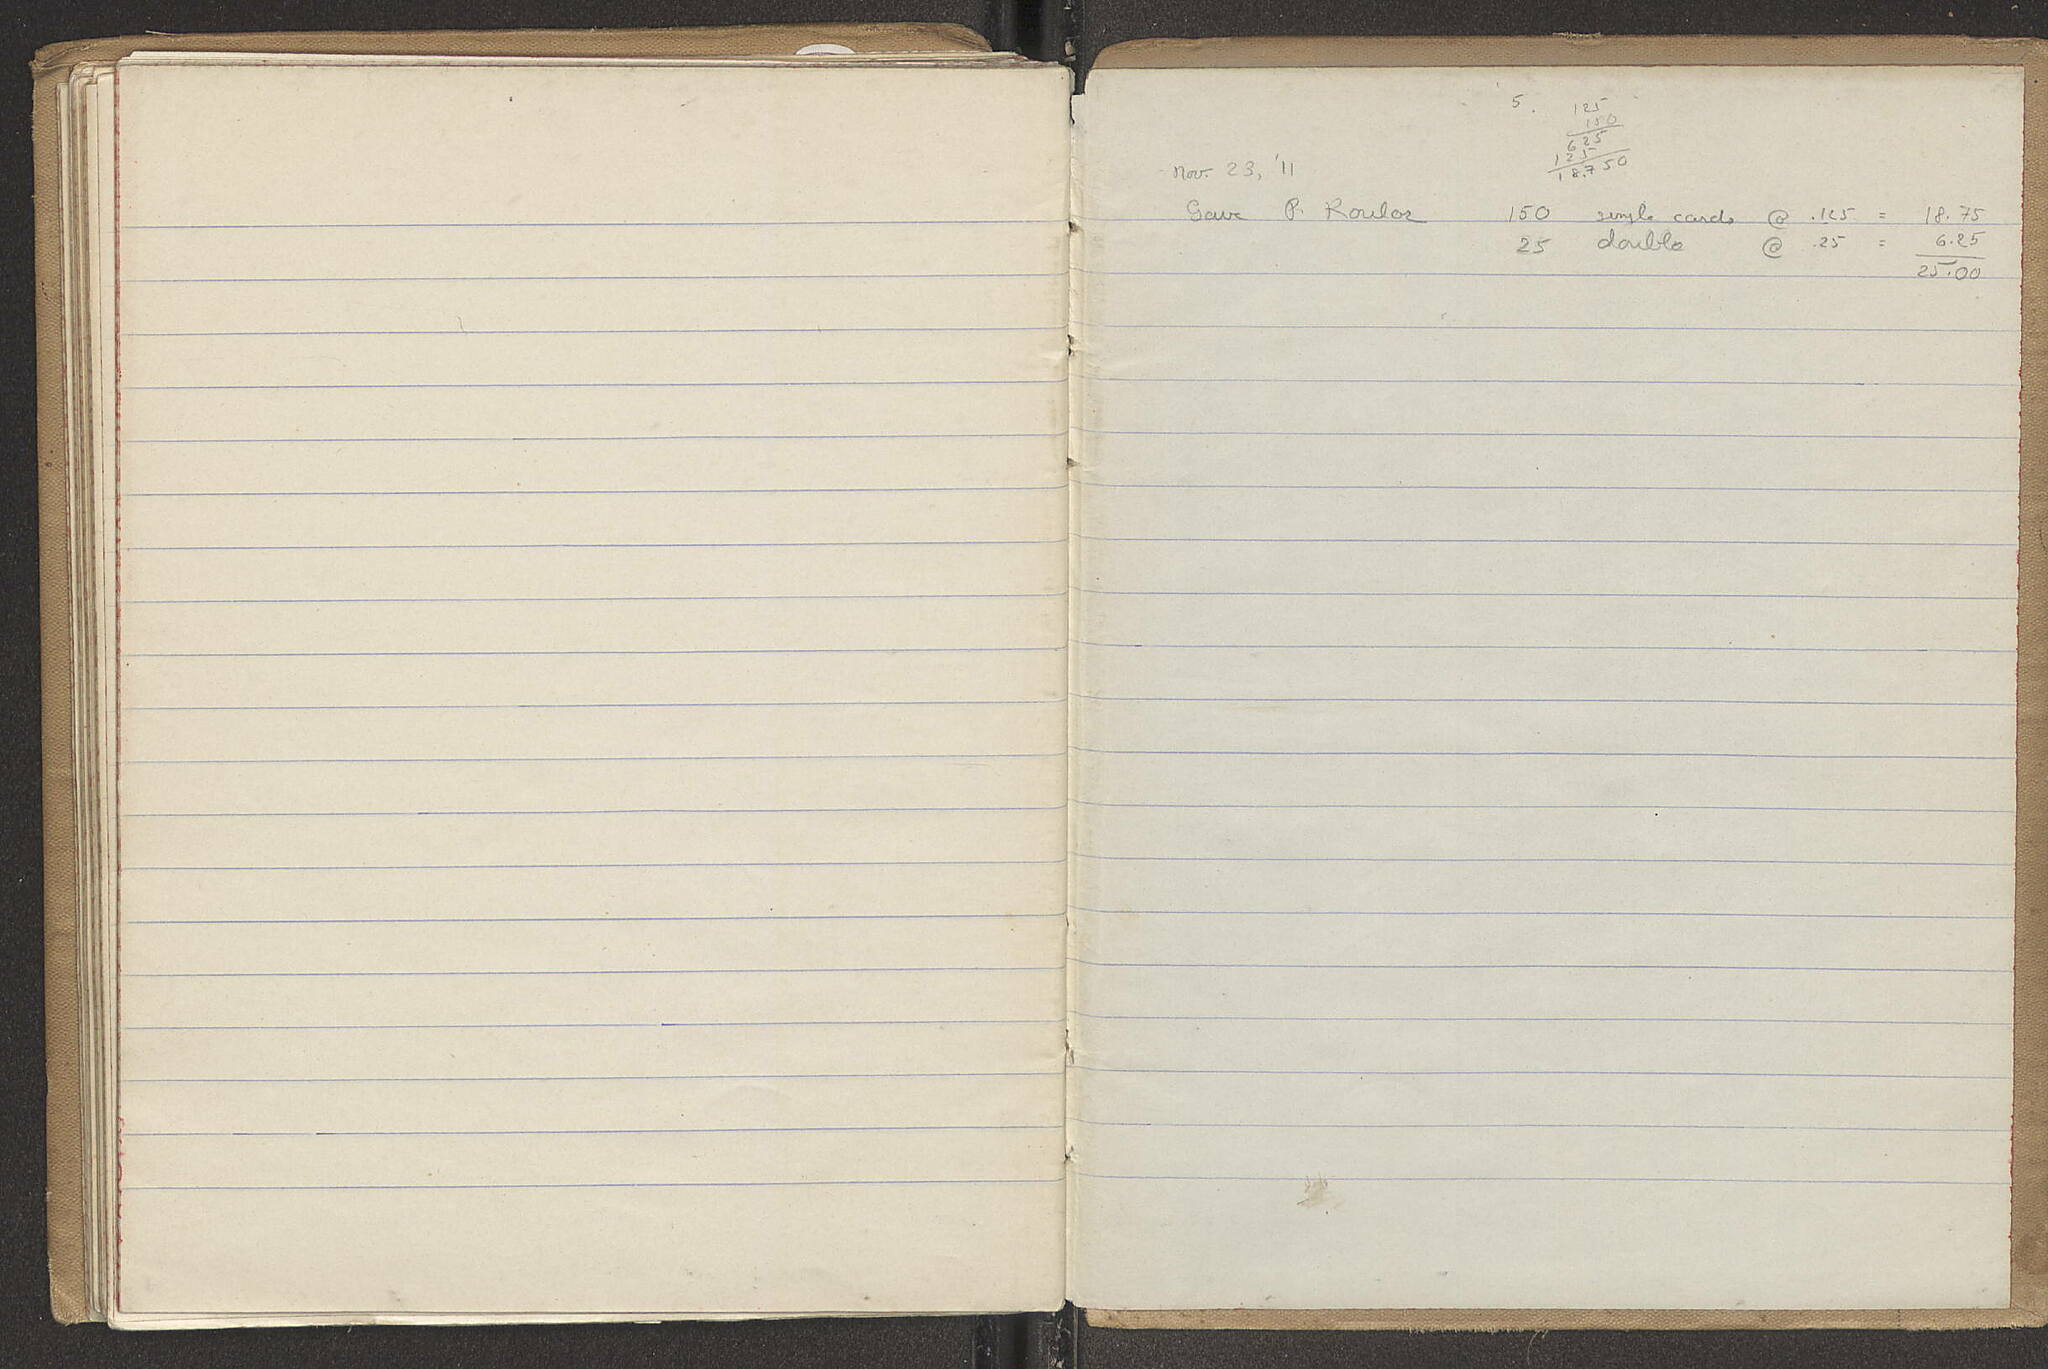 5. 125
150
625
125
18.750
Nov. 23, '11
Gave P. Roulos 150 single cards @ .125 = 18.75
25 double @ .25 = 6.25
25.00